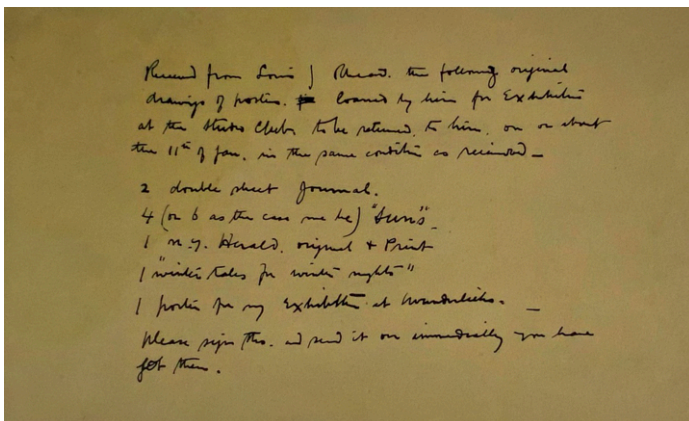 Received from Louis J Rhead. the following original
drawings of posters. loaned by him for Exhibition
at the Studio Club. to be returned to him. on or about
the 11th of Jan. in the same condition as received —
2 double sheet Journal.
4 (or 6 as the case me be) "Suns".
1 N.Y. Herald. original + Print
1 "winter tales for winter nights"
1 poster for my Exhibition at Wunderlichs. —
please sign this. and send it on immediately you have
got them.